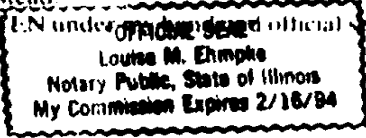 EN under my hand and official
OFFICIAL SEAL
Louise M. Ehmpke
Notary Public, State of Illinois
My Commission Expires 2/16/94